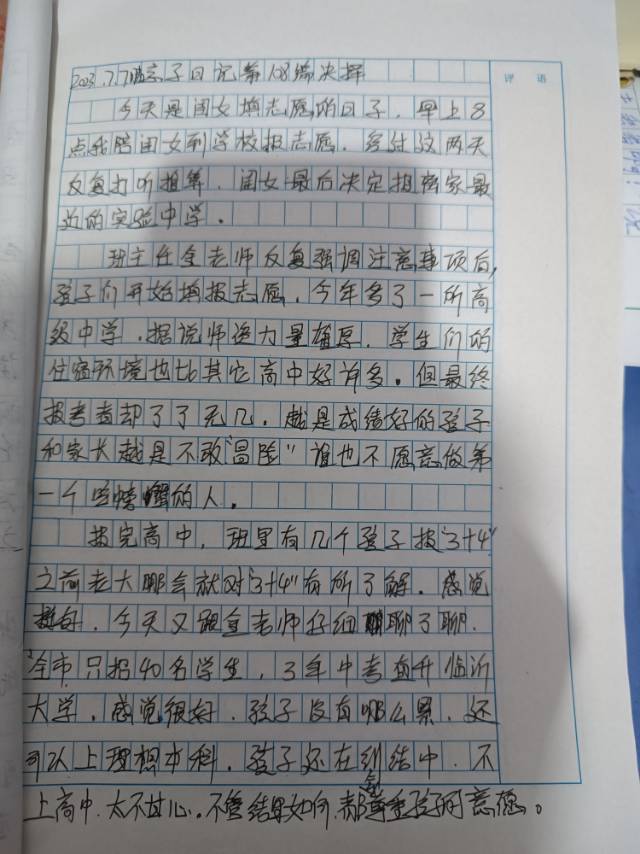 2023.7.7临亲子日记第108篇决择
评 语
今天是闺女填志愿的日子,早上8
点我陪闺女到学校报志愿,经过这两天
反复打听推算,闺女最后决定报离家最
近的实验中学。
班主任金老师反复强调注意事项后,
孩子们开始填报志愿,今年多了一所高
级中学,据说师资力量雄厚,学生们的
住宿环境也比其它高中好许多。但最终
报考者却了了无几,越是成绩好的孩子
和家长越是不敢“冒险”谁也不愿意做第
一个吃螃蟹的人。
报完高中,班里有几个孩子报“3+4”
之前老大那会就对“3+4”有所了解,感觉
挺好,今天又跟金老师仔细聊了聊,
全市只招40名学生,3年中考直升临沂
大学,感觉很好,孩子没有那么累,还
可以上理想本科,孩子还在纠结中,不
上高中,太不甘心。不管结果如何,都尊重孩子的意愿。